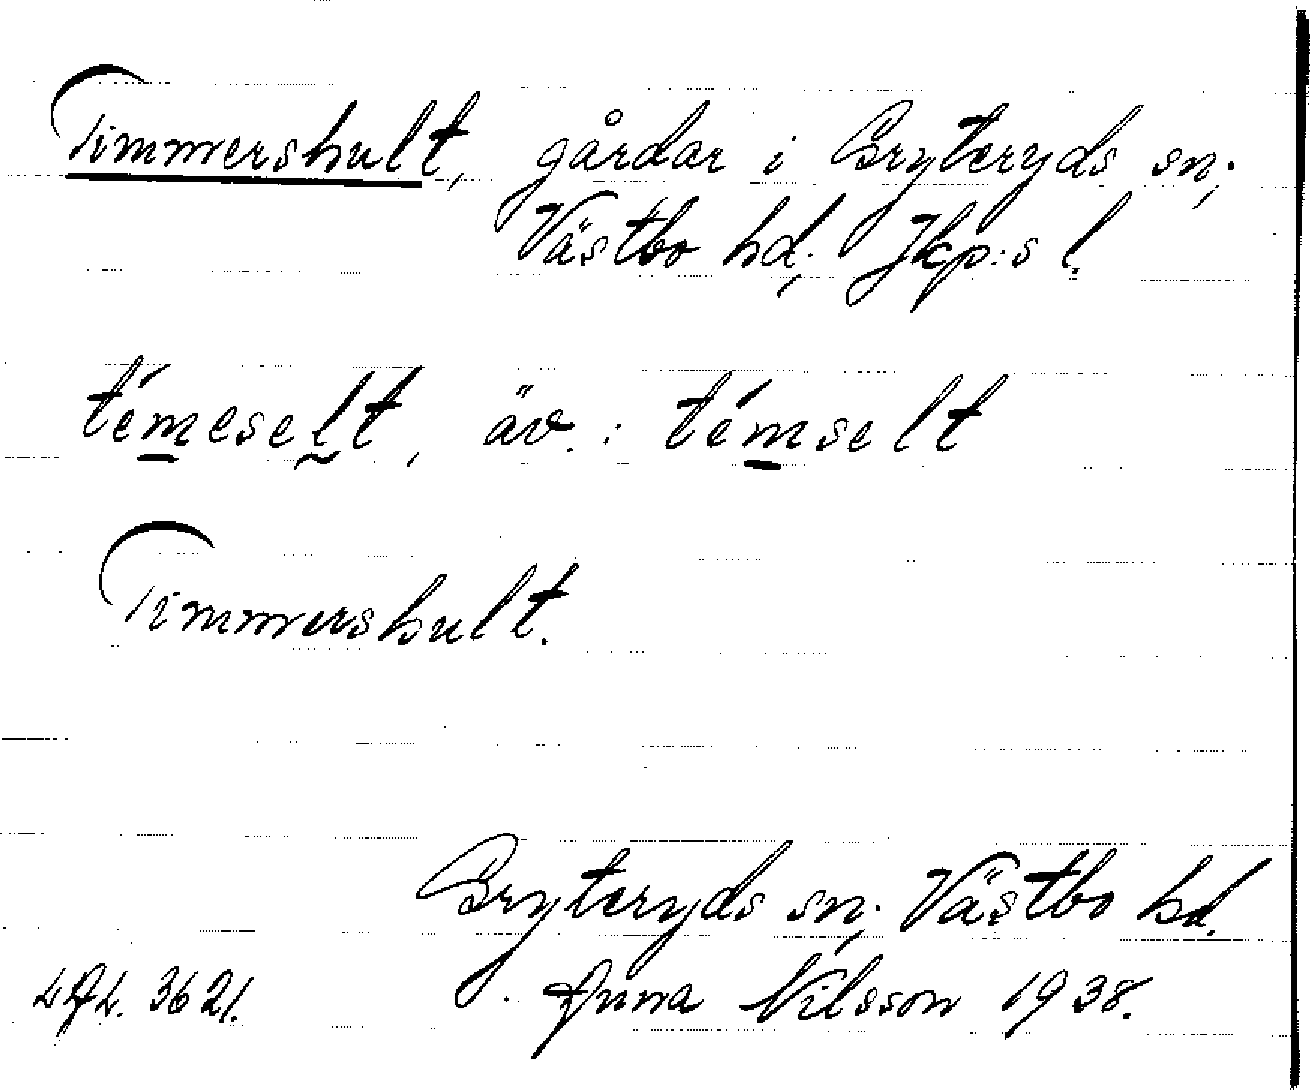 Timmershult, gårdar i Bryteryds sn;
Västbo hd; Jkp:s l.
témeselt, äv.: témselt
Timmershult.
Bryteryds sn; Västbo hd.
3621. Anna Nilsson 1938.